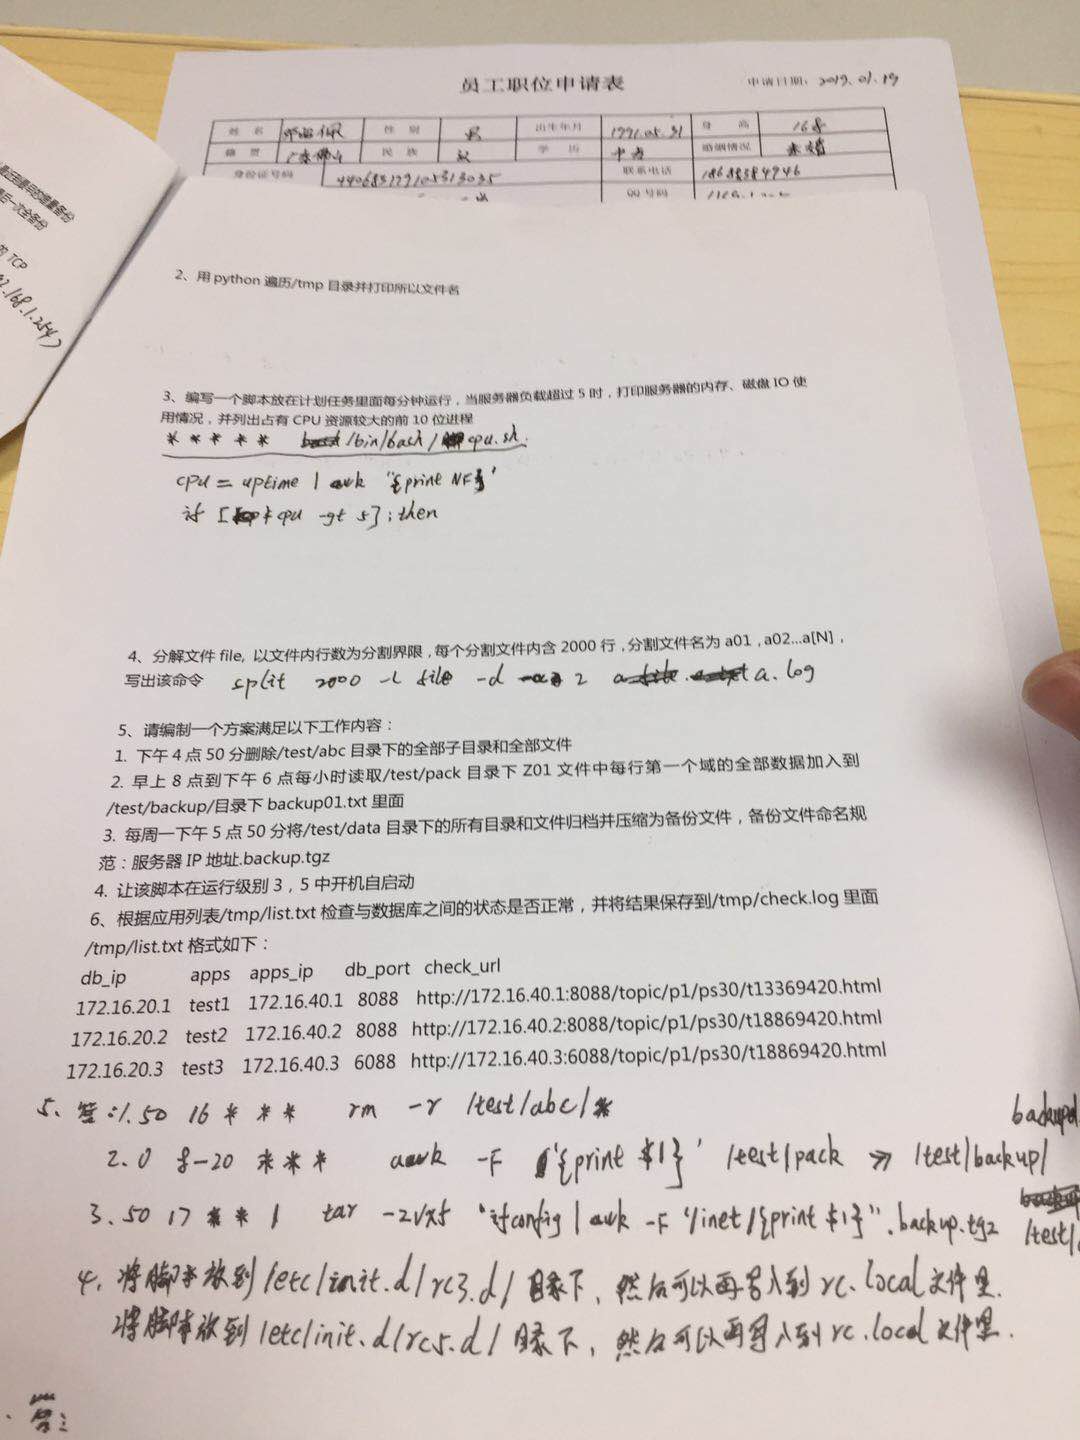 员工职位申请表
申请日期：2019.01.19
姓 名 性 别 男 出生年月 1991.05.31 身 高 168
籍 贯 民 族 汉 学 历 中专 婚姻情况 未婚
身份证号码 联系电话 18688384946
QQ号码
的 TCP
.168.1.254)
2、用 python 遍历/tmp 目录并打印所以文件名
3、编写一个脚本放在计划任务里面每分钟运行，当服务器负载超过 5 时，打印服务器的内存、磁盘 IO 使
用情况，并列出占有 CPU 资源较大的前 10 位进程
* * * * * /bin/bash / cpu.sh.
cpu = uptime | awk '{print NF}'
if [ $cpu -gt 5 ];then
4、分解文件 file, 以文件内行数为分割界限，每个分割文件内含 2000 行，分割文件名为 a01，a02...a[N]，
写出该命令 split 2000 -l file -d 2 a.log
5、请编制一个方案满足以下工作内容：
1. 下午 4 点 50 分删除/test/abc 目录下的全部子目录和全部文件
2. 早上 8 点到下午 6 点每小时读取/test/pack 目录下 Z01 文件中每行第一个域的全部数据加入到
/test/backup/目录下 backup01.txt 里面
3. 每周一下午 5 点 50 分将/test/data 目录下的所有目录和文件归档并压缩为备份文件，备份文件命名规
范：服务器 IP 地址.backup.tgz
4. 让该脚本在运行级别 3，5 中开机自启动
6、根据应用列表/tmp/list.txt 检查与数据库之间的状态是否正常，并将结果保存到/tmp/check.log 里面
/tmp/list.txt 格式如下：
db_ip apps apps_ip db_port check_url
172.16.20.1 test1 172.16.40.1 8088 http://172.16.40.1:8088/topic/p1/ps30/t13369420.html
172.16.20.2 test2 172.16.40.2 8088 http://172.16.40.2:8088/topic/p1/ps30/t18869420.html
172.16.20.3 test3 172.16.40.3 6088 http://172.16.40.3:6088/topic/p1/ps30/t18869420.html
5、答：1. 50 16 * * * rm -r /test/abc/*
2. 0 8-20 * * * awk -F '{print $1}' /test/pack >> /test/backup/
3. 50 17 * * 1 tar -zvxf 'ifconfig | awk -F "/inet/{print $1}"'.backup.tgz /test/
4. 将脚本放到/etc/init.d/rc3.d/目录下，然后可以再写入到rc.local文件里.
将脚本放到/etc/init.d/rc5.d/目录下，然后可以再写入到rc.local文件里.
答：